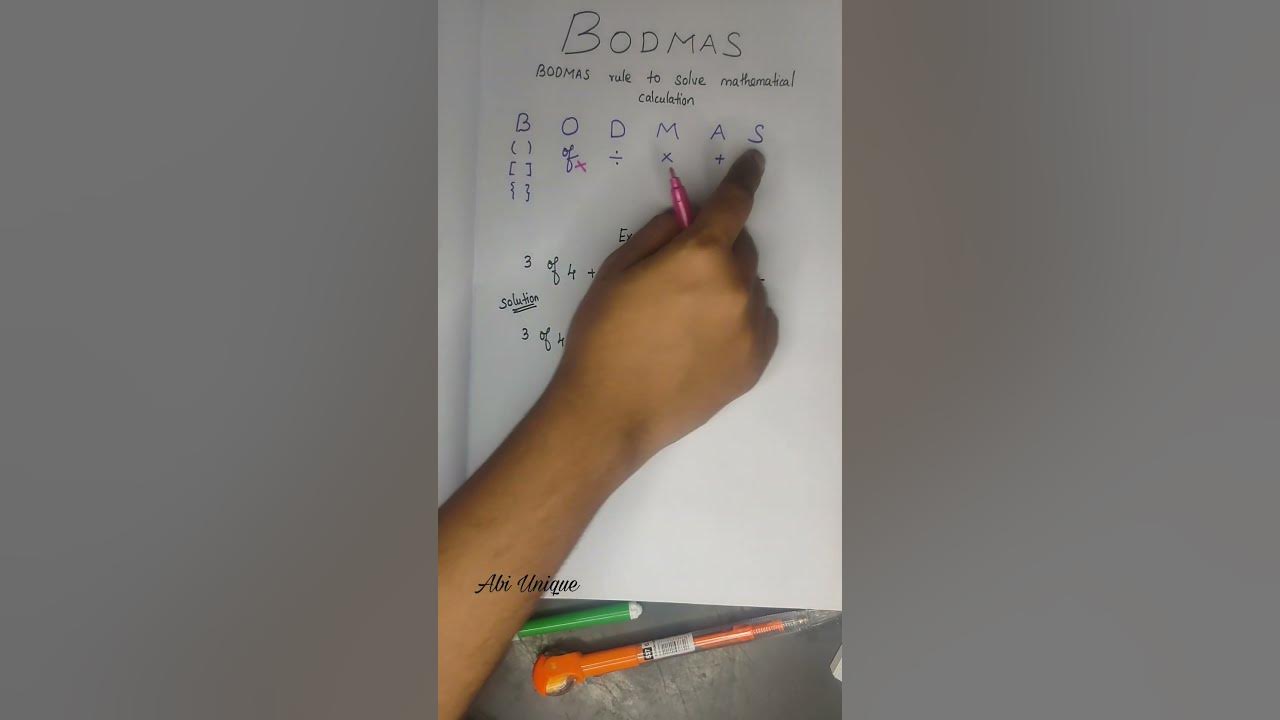 BODMAS
BODMAS rule to solve mathematical
calculation
B O D M A S
( ) of ÷ × +
[ ] ×
{ }
3 of 4 +
Solution
3 of 4
Abi Unique